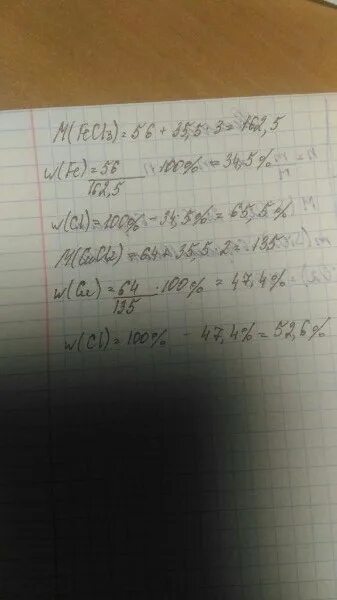 M(FeCl3) = 56 + 35,5·3 = 162,5
w(Fe) = 56/162,5 · 100% = 34,5%
w(Cl) = 100% - 34,5% = 65,5%
M(CuCl2) = 64 + 35,5·2 = 135
w(Cu) = 64/135 · 100% = 47,4%
w(Cl) = 100% - 47,4% = 52,6%